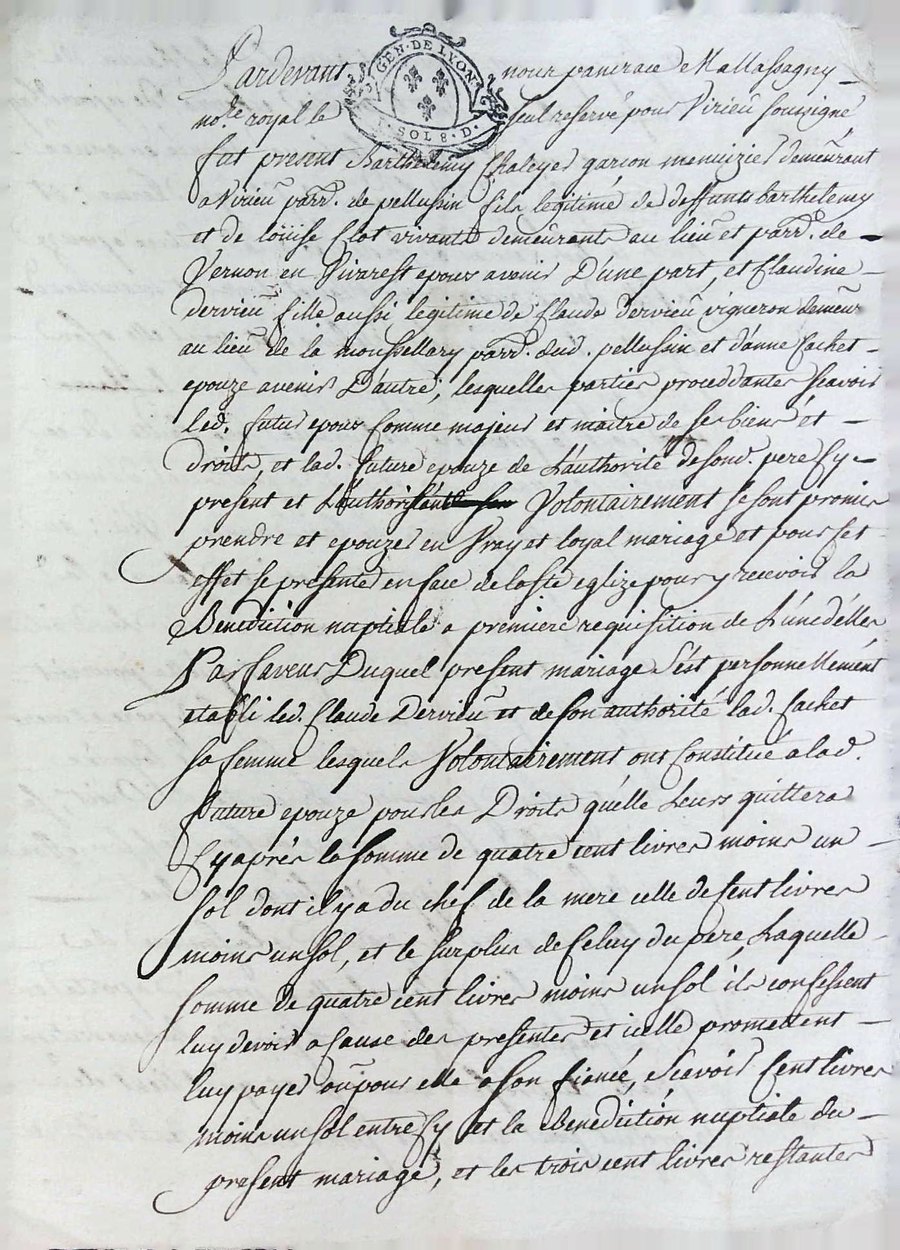 GEN. DE LYON.
1. SOL 8. D.
Pardevant nous pancrace Mallassagny
no.re royal le seul reservé pour Virieu soussigné
fut present Barthelemy Chaleyer garcon menuizier demeurant
a Virieu parr. de pellussin fils legitimé de deffunts barthelemy
et de louise Clot vivants demeurants au lieu et parr. de
Vernon en Vivarest epoux avenir D'une part, et Claudine
dervieu fille aussi legitime de Claude dervieu vigneron demeur
au lieu de la moussellary parr. dud. pellussin et d'anne Cachet
epouze avenir D'autre, lesquelles parties proceddantes Scavoir
led. futur epoux Comme majeur et maitre de ses biens et
droits, et lad. future epouze de L'authorité de sond. pere Cy
present et L'authorisant Volontairement se sont promis
prendre et epouzer en Vray et loyal mariage et pour cet
effet se presenter en face de la Ste eglize pour y recevoir la
Benediction nuptiale a premiere requisition de L'une d'elles
Par faveur Duquel present mariage S'est personnellement
etabli led. Claude Dervieu et de son authorité lad. Cachet
sa femme lesquels Volontairement ont Constitué a lad.
future epouze pour les Droits qu'elle Leurs quittera
Cy aprés la somme de quatre cent livres moins un
sol dont il y a du chef de la mere celle de Cent livres
moins un sol, et le surplus de Celuy du pere, Laquelle
somme de quatre cent livres moins un sol ils confessent
luy devoir a Cause des presentes et icelle promettent
luy payer ou pour elle a son fiancé, Scavoir Cent livres
moins un sol entre Cy et la Benediction nuptiale du
present mariage, et les trois cent livres restantes